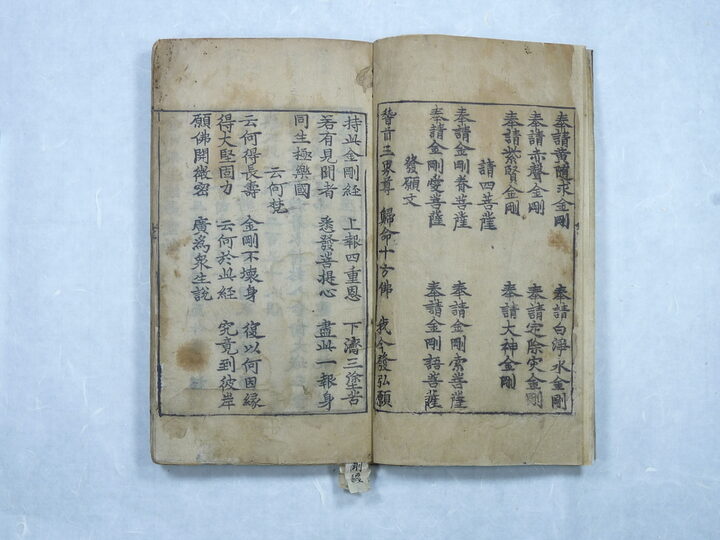 奉請黃隨求金剛　奉請白淨水金剛
奉請赤聲金剛　奉請定除災金剛
奉請紫賢金剛　奉請大神金剛
請四菩薩
奉請金剛眷菩薩　奉請金剛索菩薩
奉請金剛愛菩薩　奉請金剛語菩薩
發願文
稽首三界尊　歸命十方佛　我今發弘願
持此金剛經　上報四重恩　下濟三塗苦
若有見聞者　悉發菩提心　盡此一報身
同生極樂國
云何梵
云何得長壽　金剛不壞身　復以何因緣
得大堅固力　云何於此經　究竟到彼岸
願佛開微密　廣為衆生說